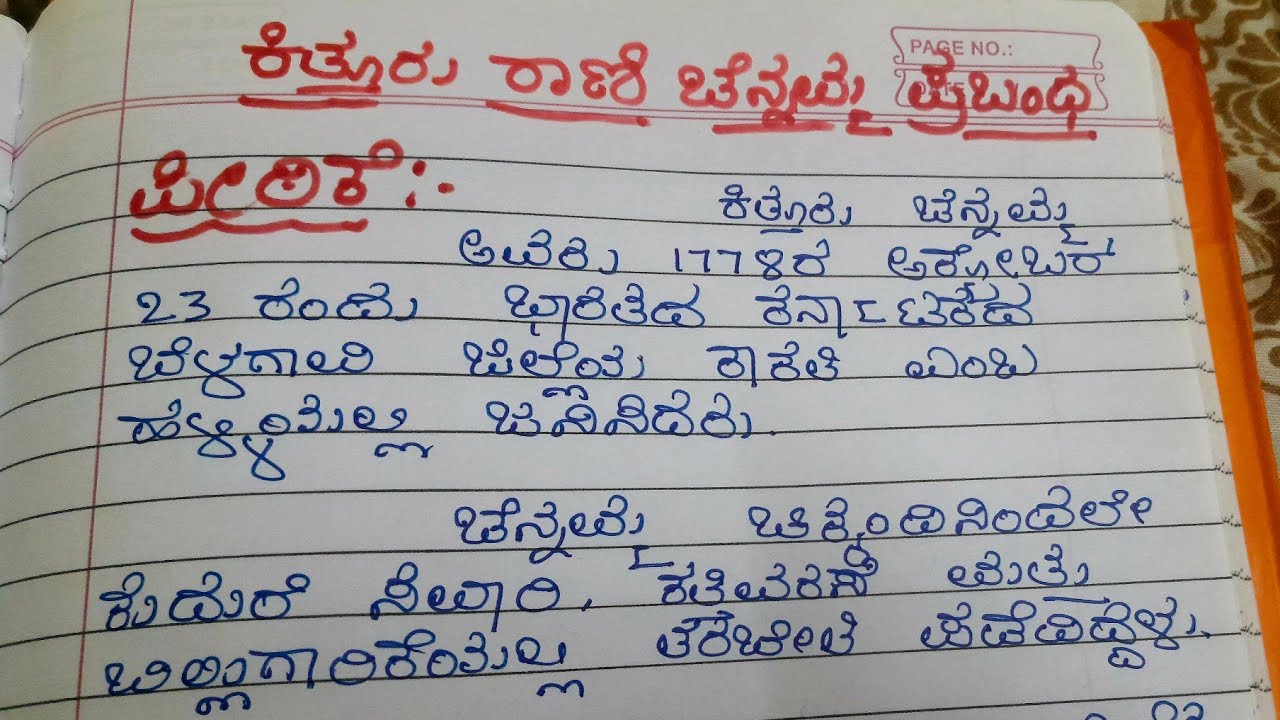 PAGE NO.:
ಕಿತ್ತೂರು ರಾಣಿ ಚೆನ್ನಮ್ಮ ಪ್ರಬಂಧ
ಪೀಠಿಕೆ:-
ಕಿತ್ತೂರು ಚೆನ್ನಮ್ಮ
ಅವರು 1778ರ ಅಕ್ಟೋಬರ್
23 ರಂದು ಭಾರತದ ಕರ್ನಾಟಕದ
ಬೆಳಗಾವಿ ಜಿಲ್ಲೆಯ ಕಾಕತಿ ಎಂಬ
ಹಳ್ಳಿಯಲ್ಲಿ ಜನಿಸಿದರು.
ಚೆನ್ನಮ್ಮ ಚಿಕ್ಕಂದಿನಿಂದಲೇ
ಕುದುರೆ ಸವಾರಿ, ಕತ್ತಿವರಸೆ ಮತ್ತು
ಬಿಲ್ಲುಗಾರಿಕೆಯಲ್ಲಿ ತರಬೇತಿ ಪಡೆದಿದ್ದಳು.